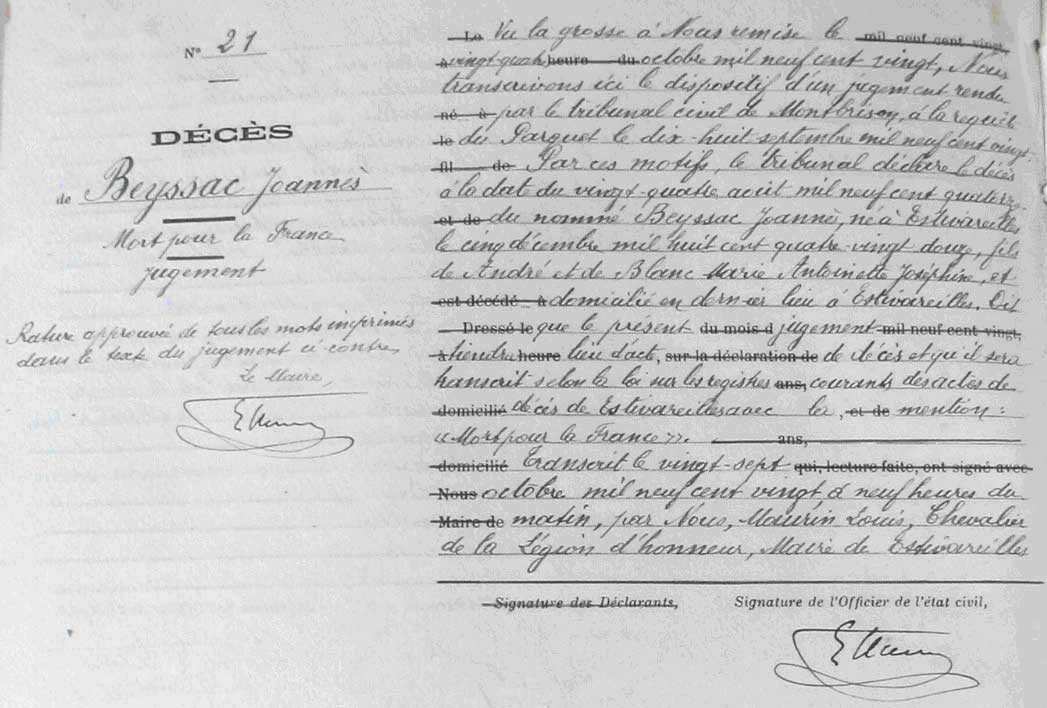 N° 21
DÉCÈS
de Beyssac Joannès
Mort pour la France
jugement
Rature approuvée de tous les mots imprimés
dans le texte du jugement ci-contre,
Le Maire,
Le Vu la grosse à Nous remise le mil neuf cent vingt,
à vingt-quatre heure du octobre mil neuf cent vingt, Nous
transcrivons ici le dispositif d'un jugement rendu
né à par le tribunal civil de Montbrison, à la requête
le du Parquet le dix-huit septembre mil neuf cent vingt.
fil de Par ces motifs, le tribunal déclare le décès
à la date du vingt-quatre août mil neuf cent quatorze
et de du nommé Beyssac Joannès, né à Estivareilles
le cinq décembre mil huit cent quatre-vingt douze, fils
de André et de Blanc Marie Antoinette Joséphine, et
est décédé à domicilié en dernier lieu à Estivareilles. Dit
Dressé le que le présent du mois d jugement mil neuf cent vingt,
à tiendra heure lieu d'acte, sur la déclaration de de décès et qu'il sera
transcrit selon la loi sur les registres ans, courants des actes de
domicilié décès de Estivareilles avec la, et de mention :
« Mort pour la France ». ans,
domicilié Transcrit le vingt-sept qui, lecture faite, ont signé avec
Nous octobre mil neuf cent vingt à neuf heures du
Maire de matin, par Nous, Maurin Louis, Chevalier
de la Légion d'honneur, Maire de Estivareilles
Signature des Déclarants, Signature de l'Officier de l'état civil,